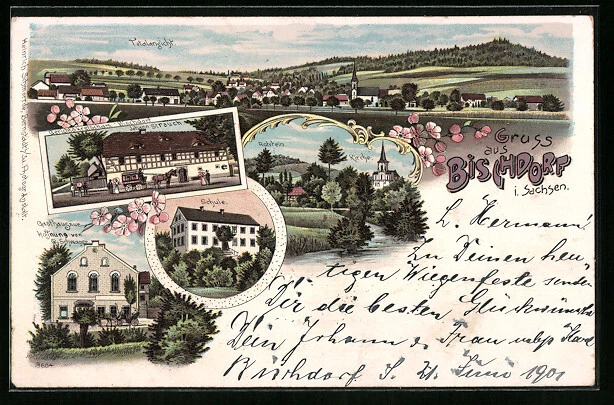 Totalansicht
Gruss
aus
BISCHDORF
i. Sachsen.
Johann Strauch
Rotstein
Kirche
Schule.
Gasthaus zur
Hoffnung von
3664
L. Hermann!
Zu Deinem heu-
tigen Wiegenfeste senden
Dir die besten Glückwünsche
Dein Johann & Frau nebst
Bischdorf d. 21. Juni 1901